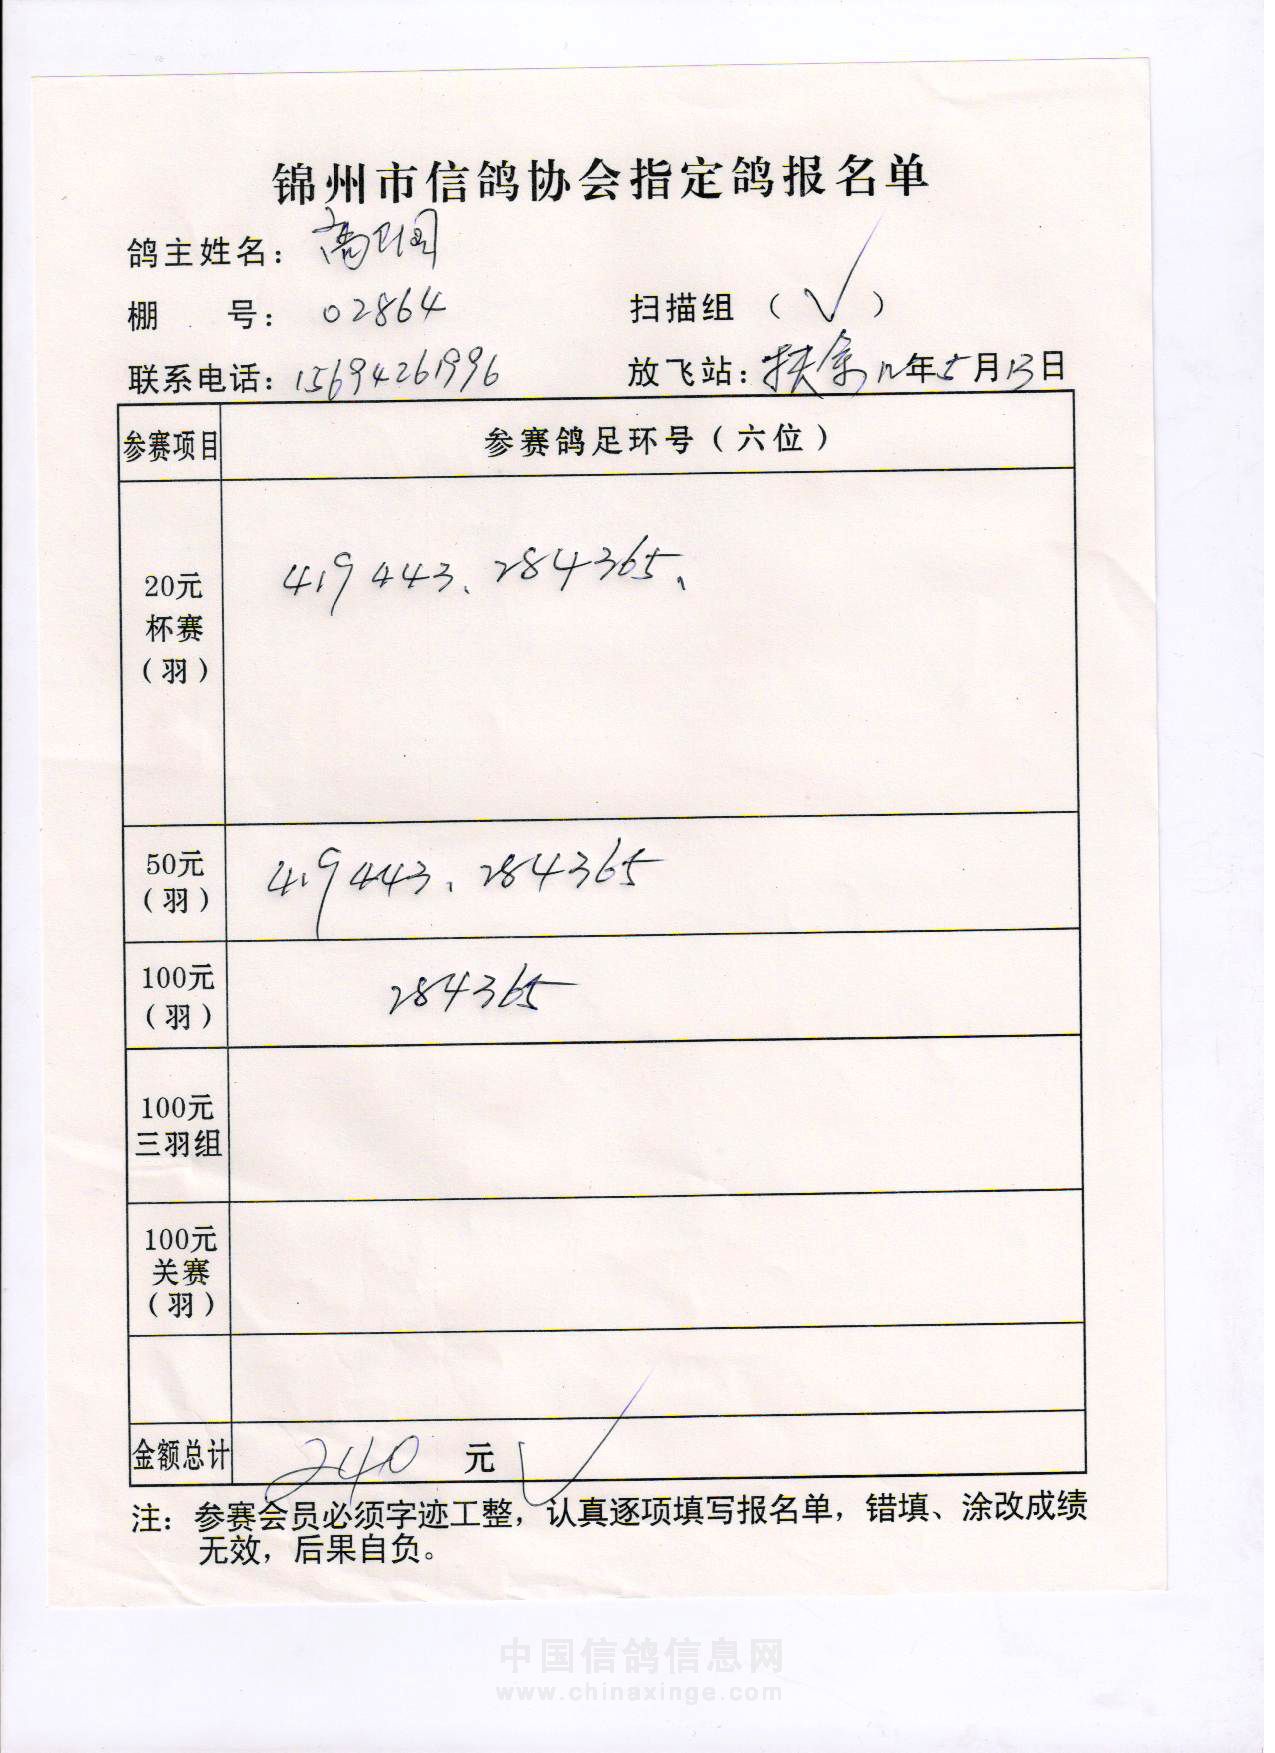 锦州市信鸽协会指定鸽报名单
鸽主姓名：高卫国
棚 号：02864 扫描组（√）
联系电话：15694261996 放飞站：扶余 12年5月13日
参赛项目 参赛鸽足环号（六位）
20元
杯赛
（羽）
419443、284365、
50元
（羽）
419443、284365
100元
（羽）
284365
100元
三羽组
100元
关赛
（羽）
金额总计 240 元 √
注：参赛会员必须字迹工整，认真逐项填写报名单，错填、涂改成绩
无效，后果自负。
中国信鸽信息网
www.chinaxinge.com